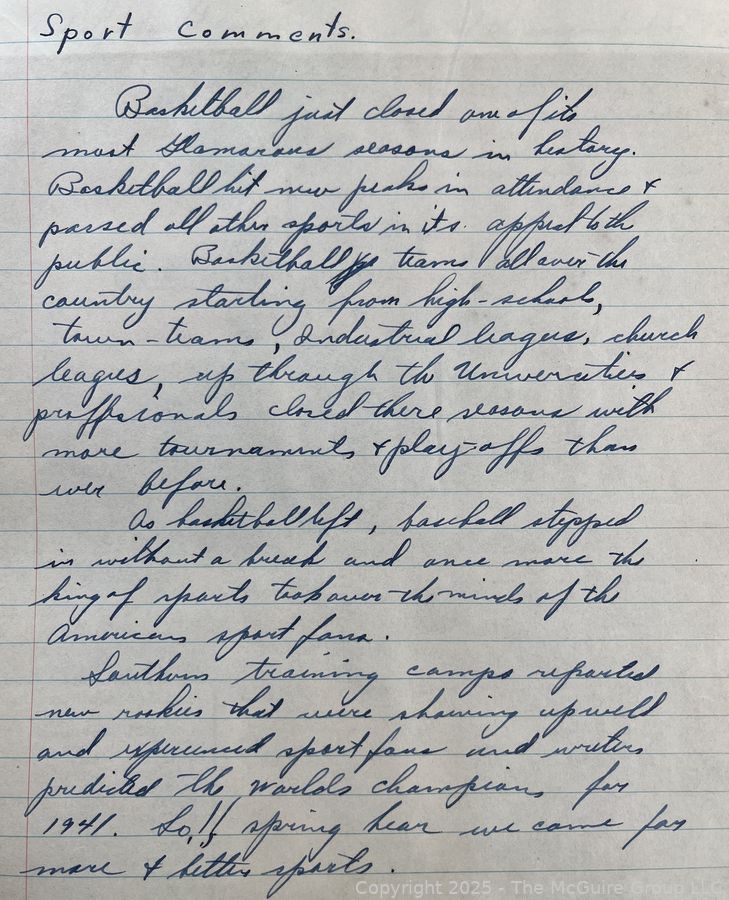 Sport Comments.
Basketball just closed one of its
most Glamorous seasons in history.
Basketball hit new peaks in attendance &
passed all other sports in its appeal to th
public. Basketball teams all over the
country starting from high-schools,
town-teams, Industrial leagues, church
leagues, up through th Universities &
proffsionals closed there seasons with
more tournaments & play-offs than
ever before.
As basketball left, baseball stepped
in without a break and once more the
king of sports took over the minds of the
American sport fans.
Southern training camps reported
new rookies that were showing up well
and experienced sport fans and writers
predicted the worlds champions for
1941. So,!! spring hear we come for
more & better sports.
Copyright 2025 - The McGuire Group LLC